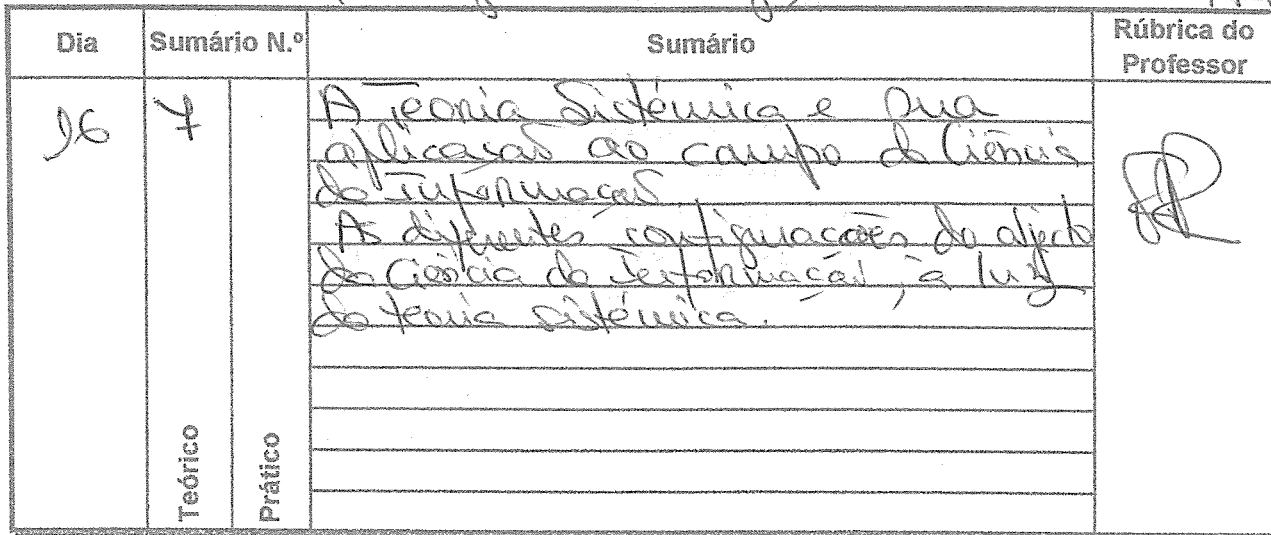 Dia Sumário N.º Sumário Rúbrica do Professor
7
A Teoria Sistémica e sua
aplicação ao campo da Ciência
da Informação.
As diferentes configurações do objecto
da Ciência da Informação, à luz
da teoria sistémica.
Teórico
Prático